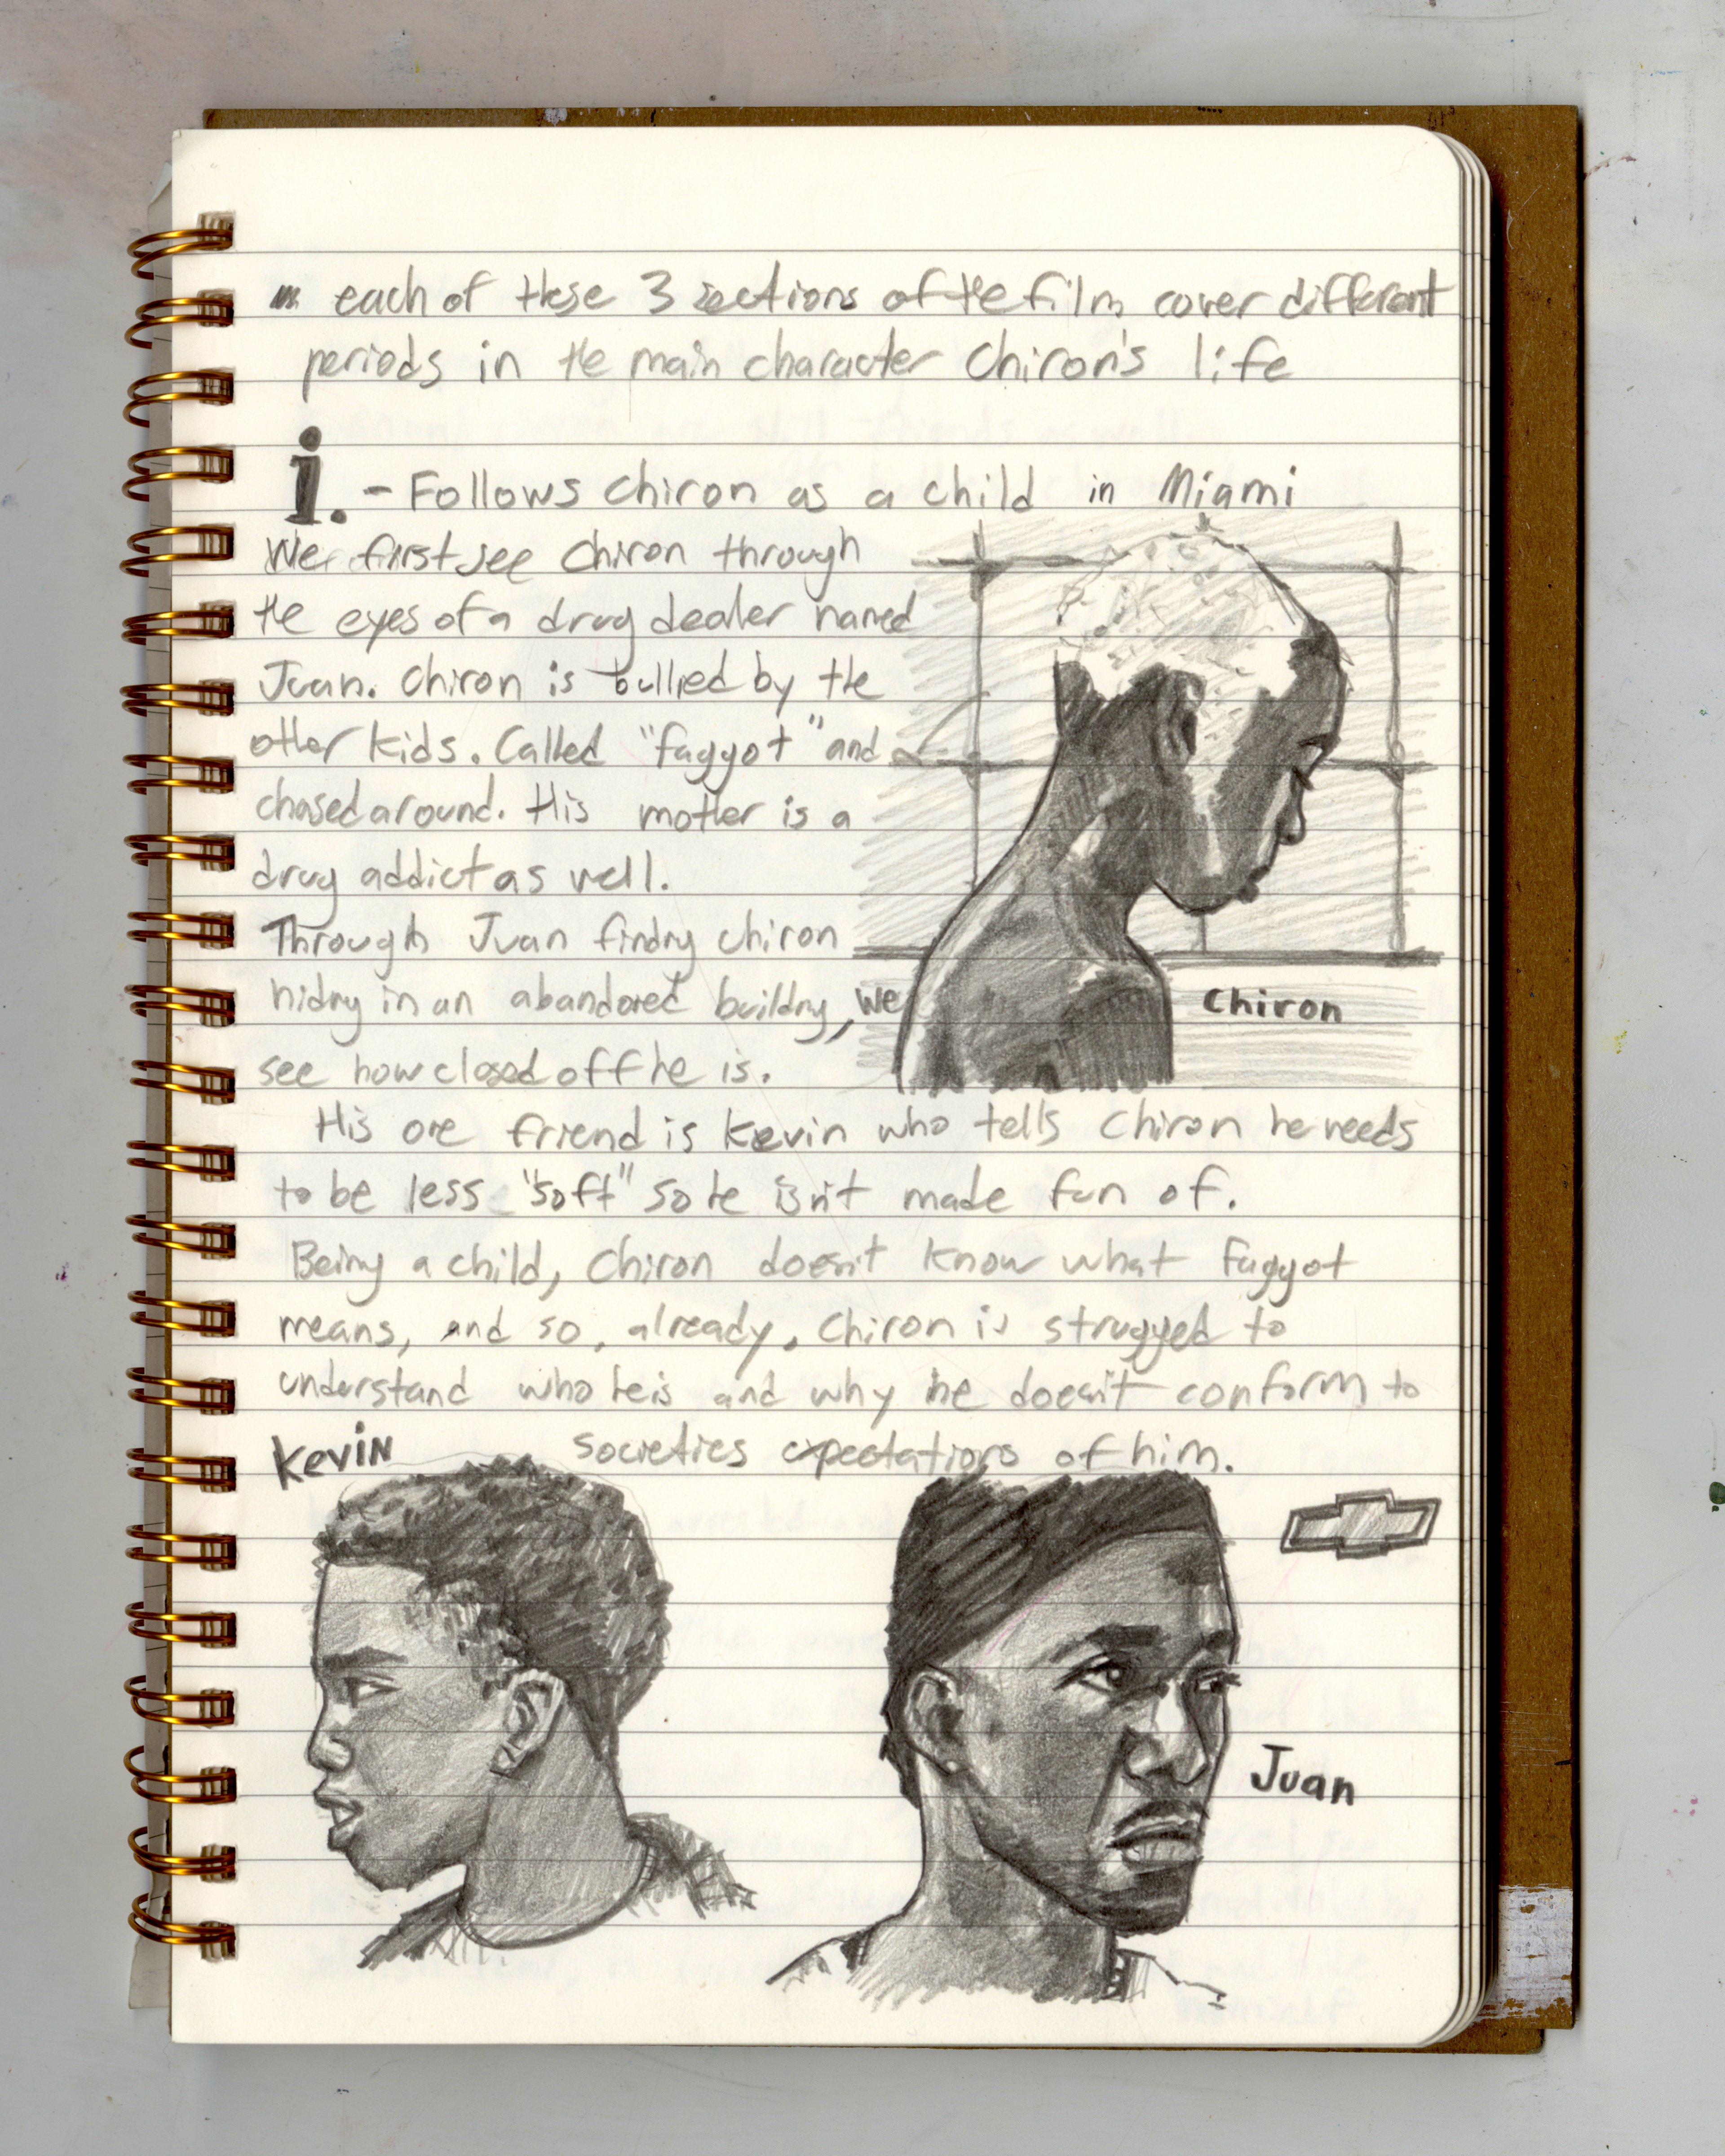 each of these 3 sections of the film cover different
periods in the main character Chiron's life
i. - Follows Chiron as a child in Miami
We first see Chiron through
the eyes of a drug dealer named
Juan. Chiron is bullied by the
other kids. Called "faggot" and
chased around. His mother is a
drug addict as well.
Through Juan finding Chiron
hiding in an abandoned building, we
see how closed off he is.
Chiron
His one friend is Kevin who tells Chiron he needs
to be less "soft" so he isn't made fun of.
Being a child, Chiron doesn't know what faggot
means, and so, already, Chiron is struggled to
understand who he is and why he doesn't conform to
societies expectations of him.
Kevin
Juan